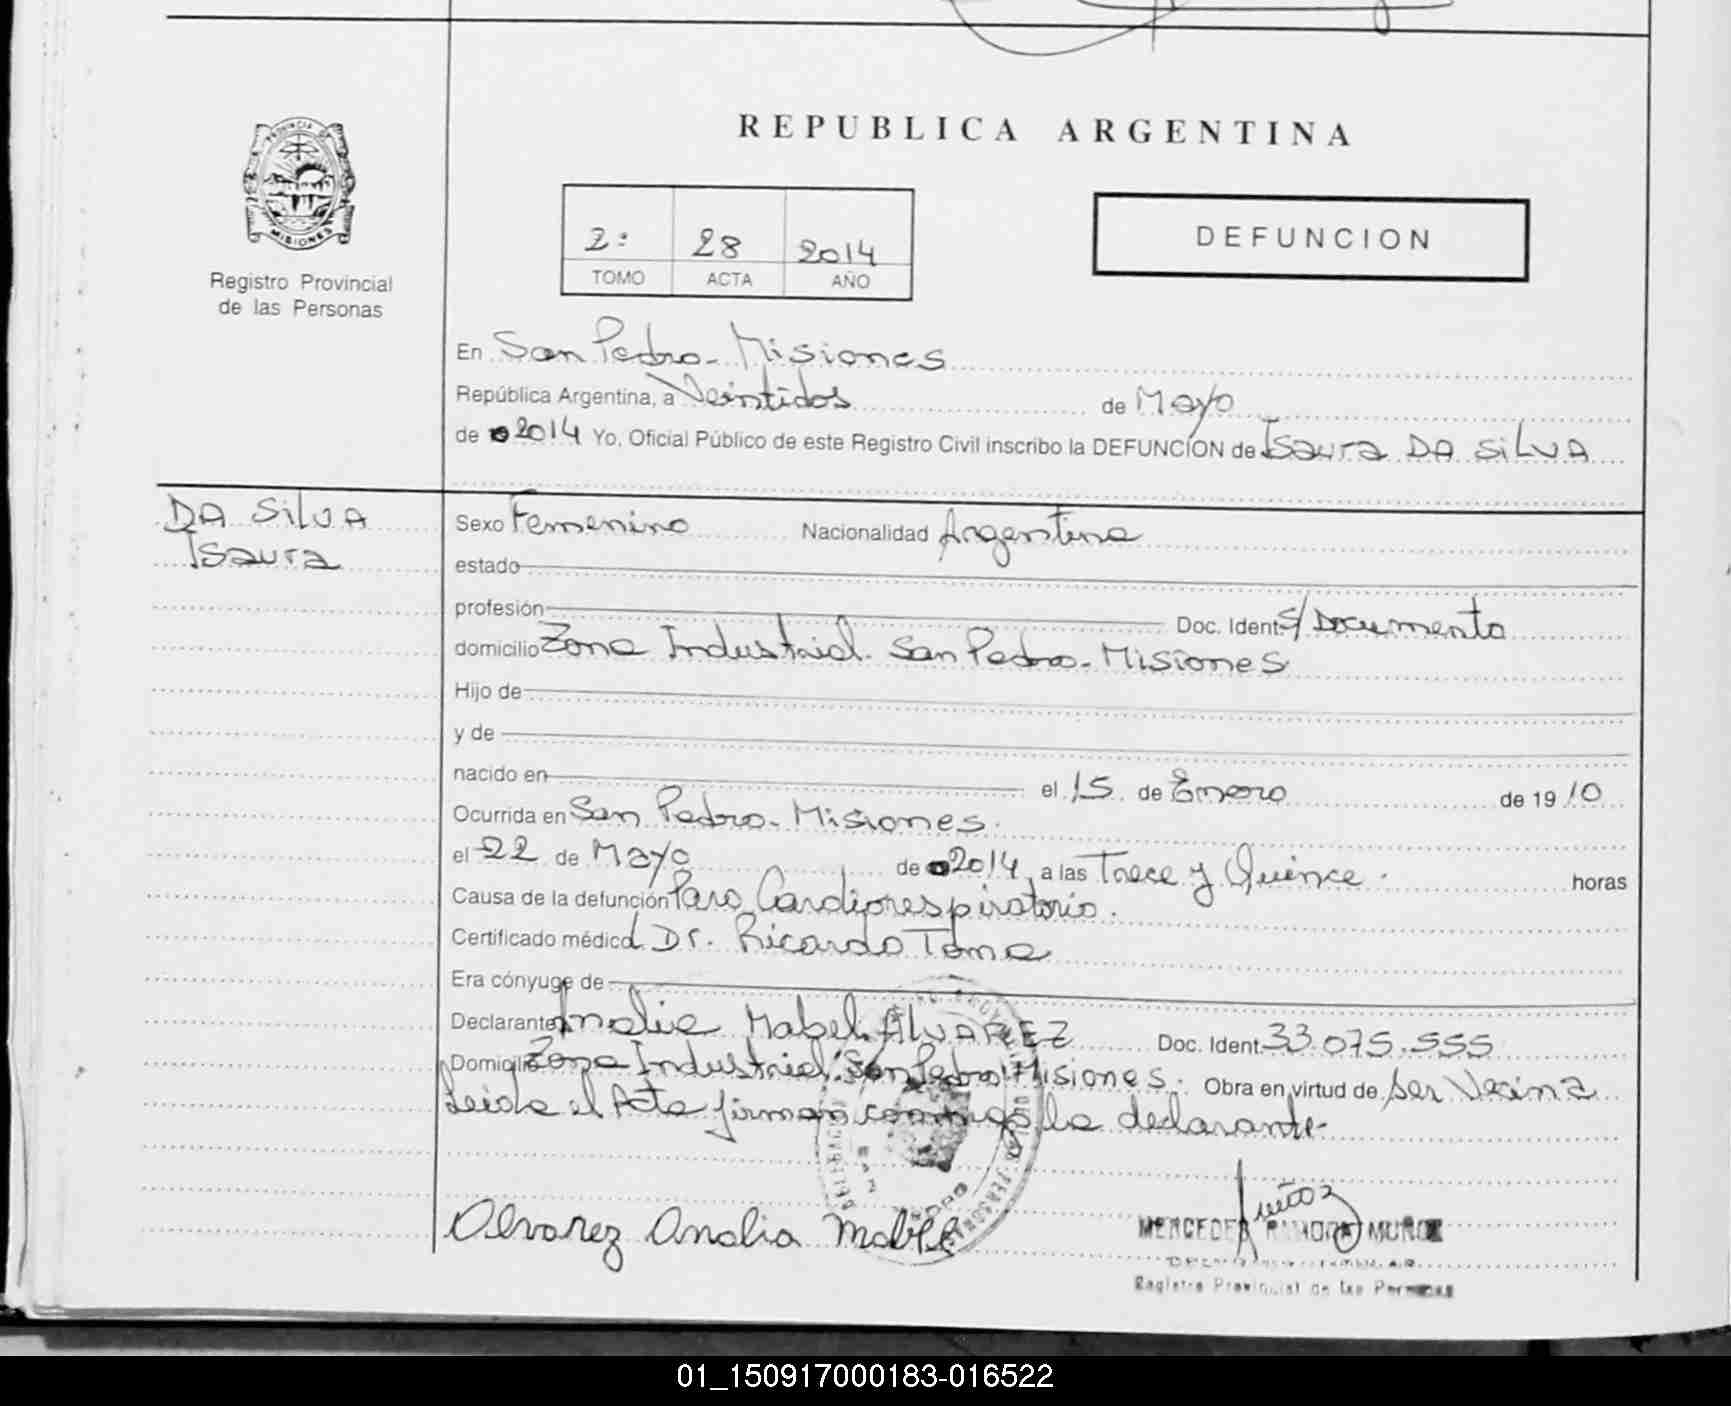 PROVINCIA DE
MISIONES
Registro Provincial
de las Personas
REPUBLICA ARGENTINA
2: 28 2014
TOMO ACTA AÑO
DEFUNCION
En San Pedro - Misiones
República Argentina, a Veintidos de Mayo
de 2014 Yo, Oficial Público de este Registro Civil inscribo la DEFUNCION de Isaura DA SiLVA
DA SiLVA
Isaura
Sexo Femenino Nacionalidad Argentina
estado
profesión Doc. Ident. S/Documento
domicilio Zona Industrial. San Pedro - Misiones
Hijo de
y de
nacido en el 15 de Enero de 19 10
Ocurrida en San Pedro - Misiones.
el 22 de Mayo de 2014 a las Trece y Quince. horas
Causa de la defunción Paro Cardiorespiratorio.
Certificado médico Dr. Ricardo Toma
Era cónyuge de
Declarante Analia Mabel ALVAREZ Doc. Ident. 33.075.555
Domicilio Zona Industrial San Pedro Misiones. Obra en virtud de ser Vecina
Leida el Acta firman conmigo la declarante-
Alvarez Analia Mabel
Muñoz
MERCEDES RAMONA MUÑOZ
Registro Provincial de las Personas
01_150917000183-016522